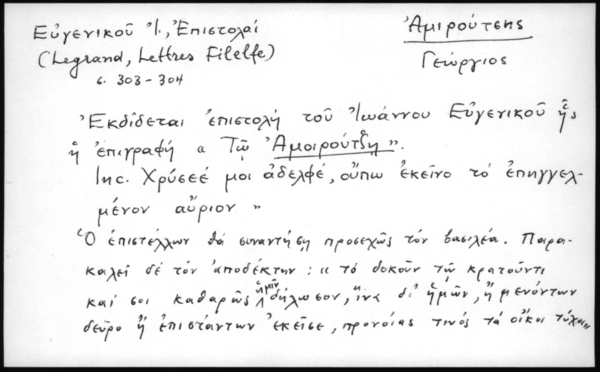 Εὐγενικοῦ Ἰ., Ἐπιστολαί
(Legrand, Lettres Filelfe)
σ. 303-304
Ἀμιρούτσης
Γεώργιος
Ἐκδίδεται ἐπιστολή τοῦ Ἰωάννου Εὐγενικοῦ ἧς
ἡ ἐπιγραφή « Τῷ Ἀμοιρούτζῃ ».
Inc. Χρύσεέ μοι ἀδελφέ, οὔπω ἐκεῖνο τό ἐπηγγελ-
μένον αὔριον »
Ὁ ἐπιστέλλων θά συναντήσῃ προσεχῶς τόν βασιλέα. Παρα-
καλεῖ δέ τόν ἀποδέκτην: « τό δοκοῦν τῷ κρατοῦντι
καί σοι καθαρῶς ἡμῖν δήλωσον, ἵνα δι' ἡμῶν, ἤ μενόντων
δεῦρο ἤ ἐπιστάντων ἐκεῖσε, προνοίας τινός τά οἴκοι τύχῃ »